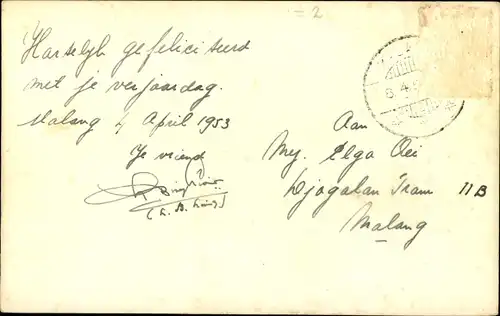 = 2
Hartelijk gefeliciteerd
met je verjaardag.
Malang 4 April 1953
Je vriend
6.4.5
Aan
Mej. Elga Oei
Djagalan Tram 11B
Malang